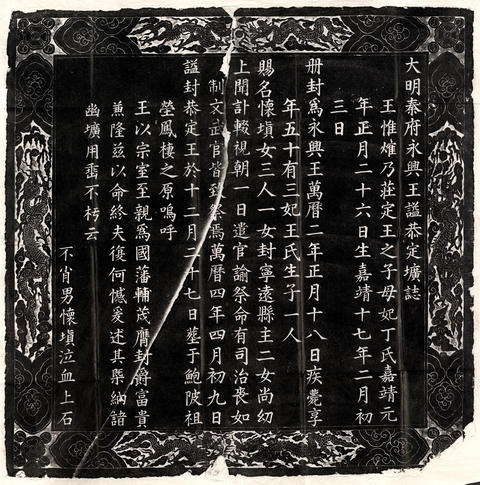 大明秦府永興王謚恭定壙誌
王惟熷乃莊定王之子母妃丁氏嘉靖元
年正月二十六日生嘉靖十七年二月初
三日
册封為永興王萬曆二年正月十八日疾薨享
年五十有三妃王氏生子一人
賜名懷墳女三人一女封寧遠縣主二女尚幼
上聞訃輟視朝一日遣官諭祭命有司治喪如
制文武官皆致祭焉萬曆四年四月初九日
謚封恭定王於十二月二十七日塟于鮑陂祖
塋鳳棲之原嗚呼
王以宗室至親為國藩輔茂膺封爵富貴
兼隆茲以命終夫復何憾爰述其槩納諸
幽壙用垂不朽云
不肖男懷墳泣血上石